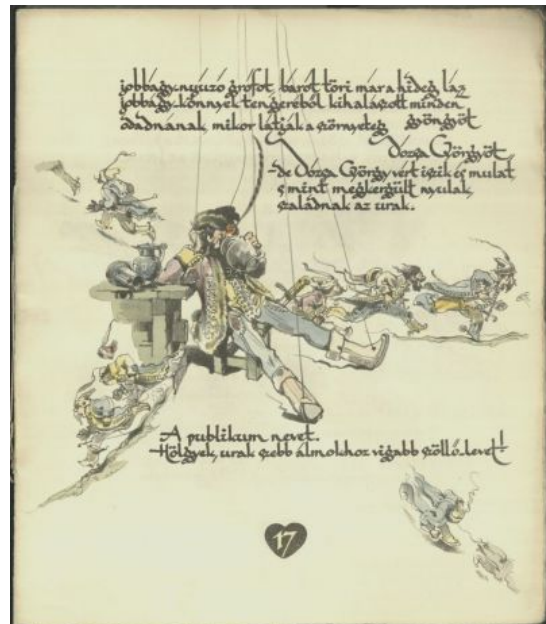 jobbágy-nyúzó grófot, bárót töri már a hideg láz
jobbágy-könnyek tengeréből kihalászott minden
gyöngyöt
ódadnának mikor látják a szörnyeteg
Dózsa Györgyöt
-de Dózsa György vért iszik és mulat
s mint megkergült nyulak
szaladnak az urak.
A publikum nevet.
Hölgyek, urak szebb álmokhoz vígabb szöllő-levet!
17